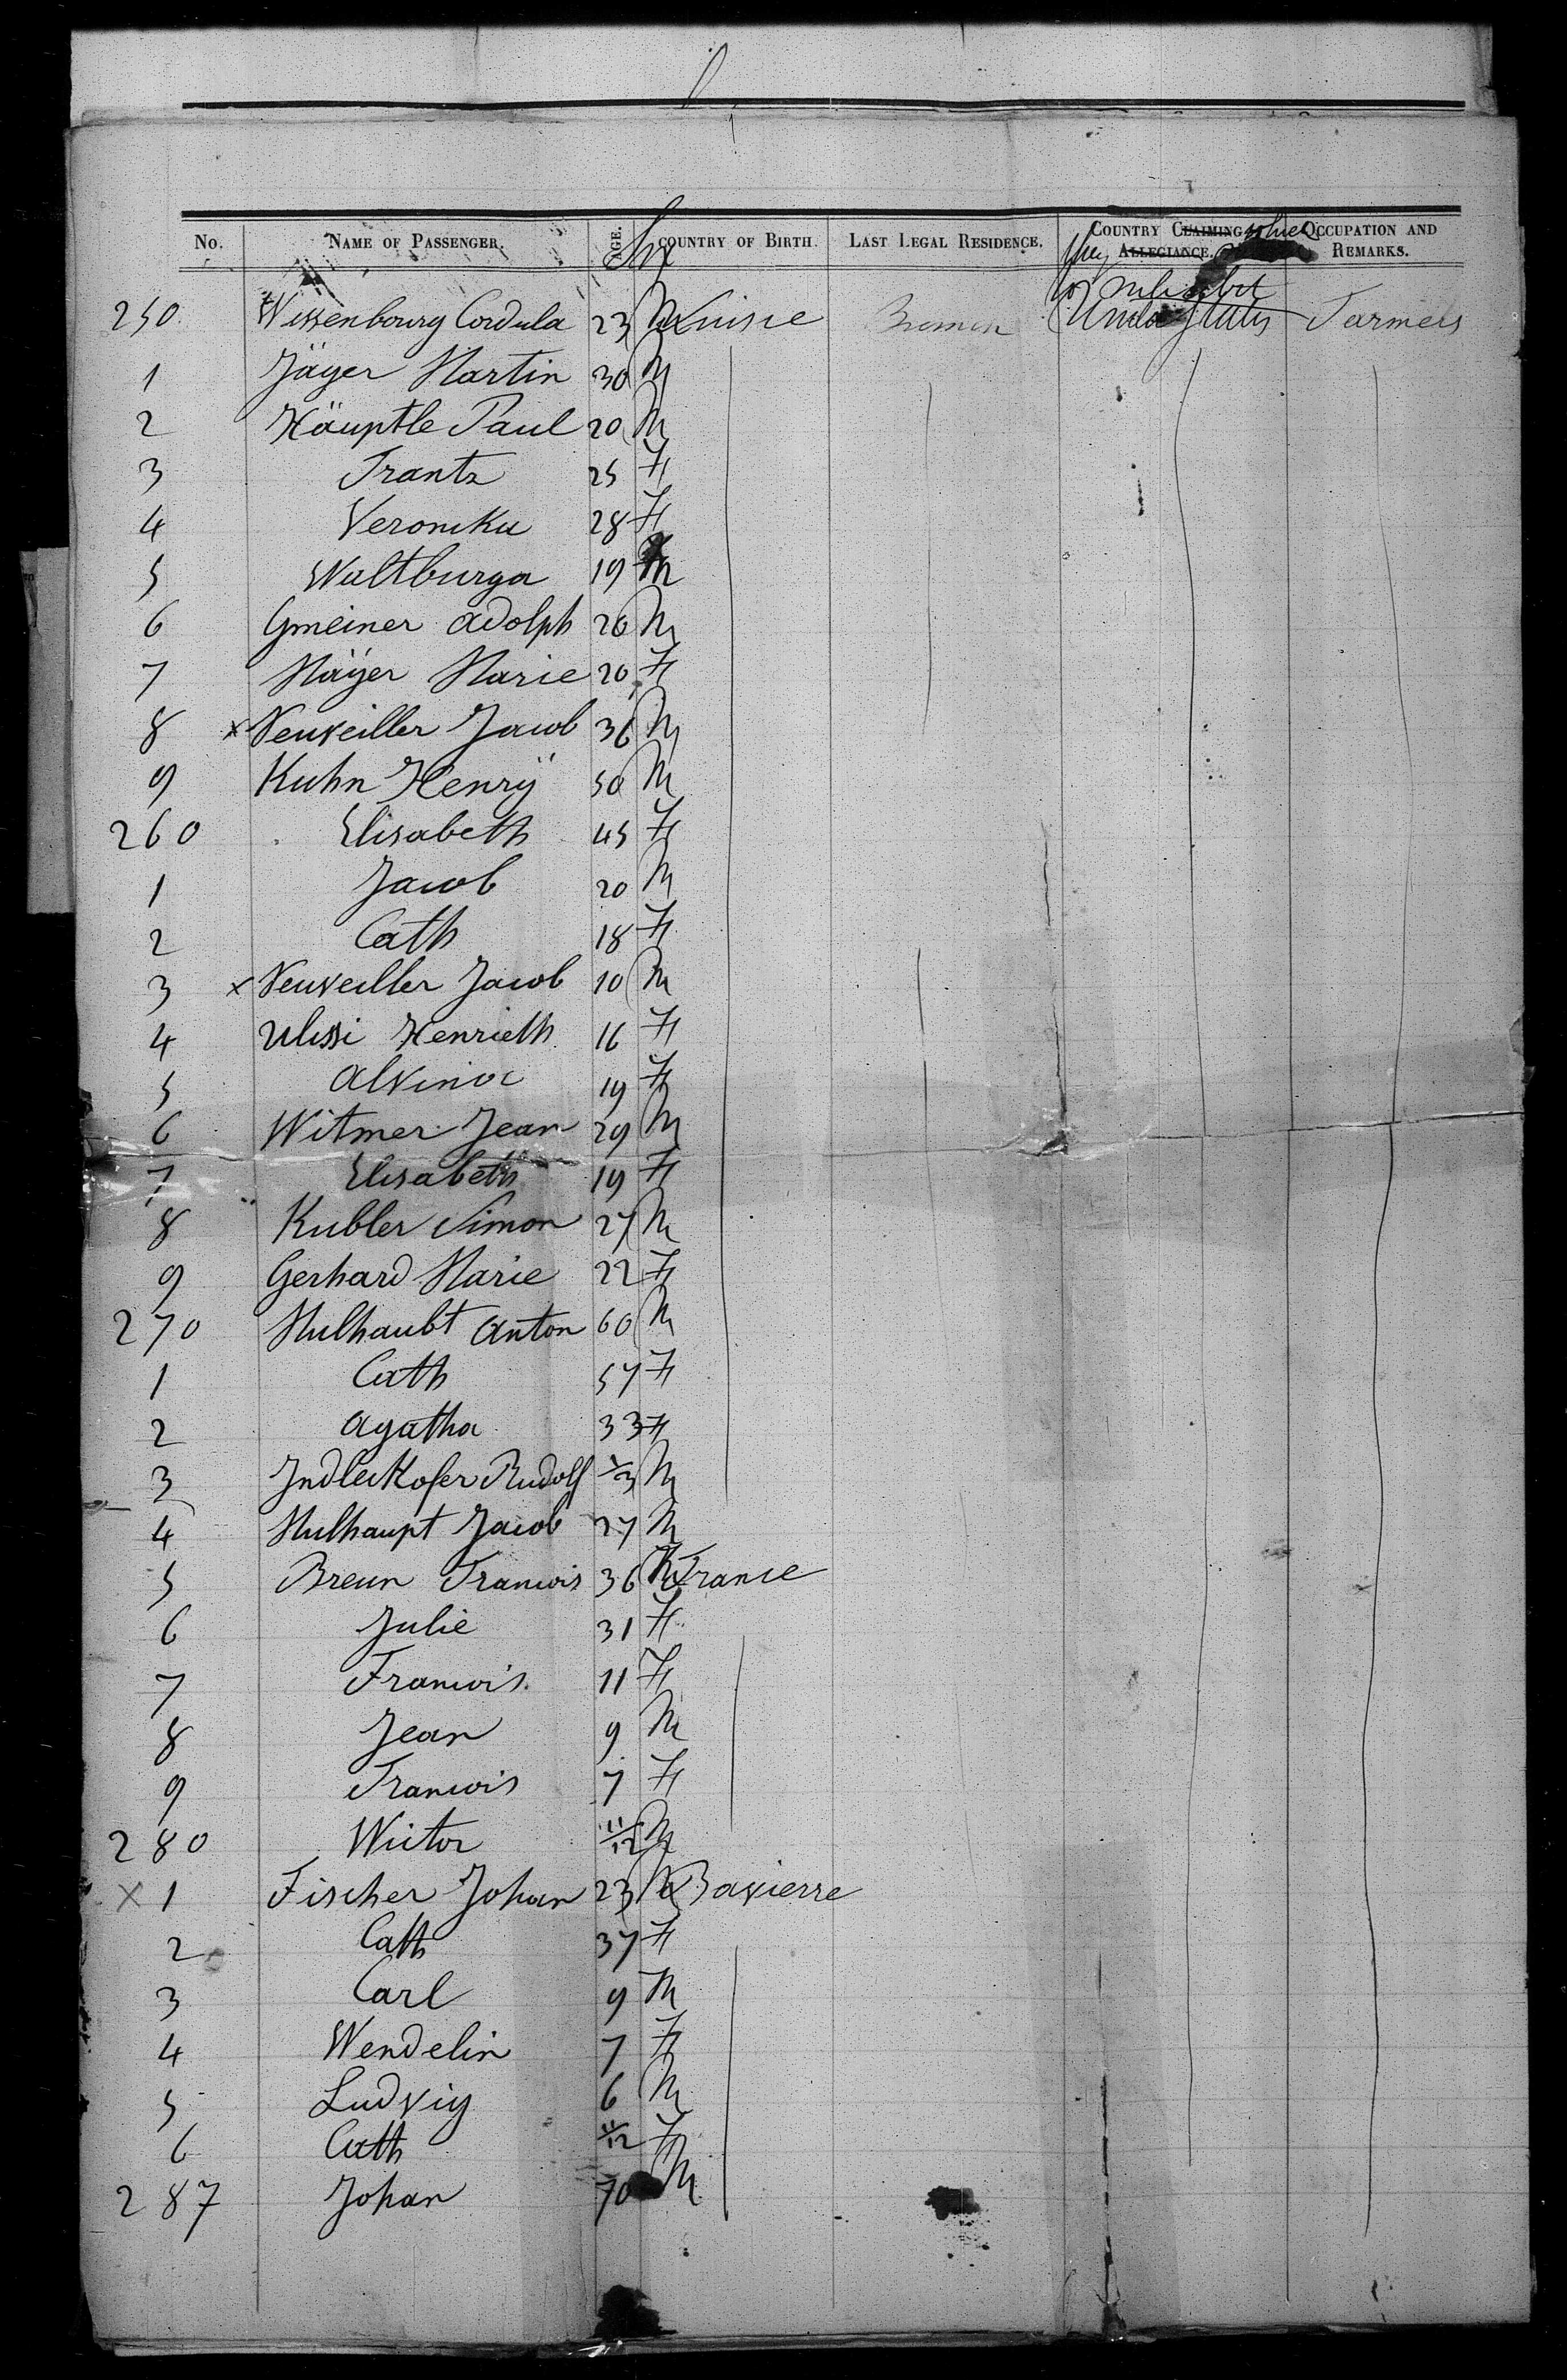 No. NAME OF PASSENGER. AGE. Sex COUNTRY OF BIRTH. LAST LEGAL RESIDENCE. COUNTRY CLAIMING ALLEGIANCE. OCCUPATION AND REMARKS.
to inhabit
250 Wissenbourg Cordula 23 M Suisse Bremen United States Farmers
1 Jäger Martin 30 M
2 Häuptle Paul 20 M
3 Frantz 25 F
4 Veronika 28 F
5 Waltburga 19 M
6 Gmeiner Adolph 26 M
7 Mayer Marie 20 F
8 x Neuveiller Jacob 36 M
9 Kuhn Henry 50 M
260 Elisabeth 45 F
1 Jacob 20 M
2 Cath 18 F
3 x Neuveiller Jacob 10 M
4 Ulissi Henrieth 16 F
5 Alvina 19 F
6 Witmer Jean 29 M
7 Elisabeth 19 F
8 Kubler Simon 27 M
9 Gerhard Marie 22 F
270 Mulhaubt Anton 60 M
1 Cath 57 F
2 Agatha 33 F
3 Indlekofer Rudolf M
4 Mulhaupt Jacob 27 M
5 Breun Francois 36 M France
6 Julie 31 F
7 Francois 11 F
8 Jean 9 M
9 Francois 7 F
280 Wictor 11/12 M
x 1 Fischer Johan 23 M Bavierre
2 Cath 37 F
3 Carl 9 M
4 Wendelin 7 F
5 Ludvig 6 M
6 Cath 11/12 F
287 Johan 70 M